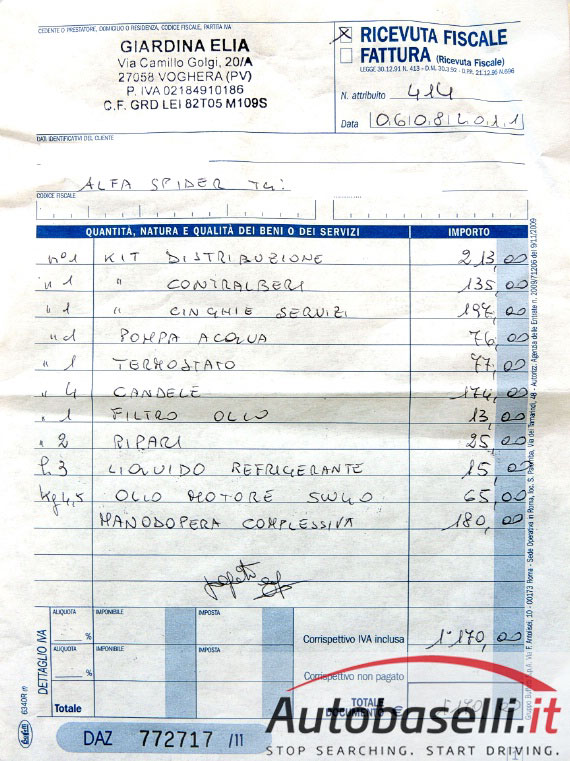 CEDENTE O PRESTATORE, DOMICILIO O RESIDENZA, CODICE FISCALE, PARTITA IVA
GIARDINA ELIA
Via Camillo Golgi, 20/A
27058 VOGHERA (PV)
P. IVA 02184910186
C.F. GRD LEI 82T05 M109S
X RICEVUTA FISCALE
FATTURA (Ricevuta Fiscale)
LEGGE 30.12.91 N. 413 - D.M. 30.3.92 - D.P.R. 21.12.96 N.696
N. attribuito 414
Data 06082011
DATI IDENTIFICATIVI DEL CLIENTE
ALFA SPIDER
CODICE FISCALE
QUANTITÀ, NATURA E QUALITÀ DEI BENI O DEI SERVIZI IMPORTO
n°1 KIT DISTRIBUZIONE 213,00
" 1 " CONTRALBERI 135,00
" 1 " CINGHIE SERVIZI 197,00
" 1 POMPA ACQUA 76,00
" 1 TERMOSTATO 77,00
" 4 CANDELE 174,00
" 1 FILTRO OLIO 13,00
" 2 RIPARI 25,00
L.3 LIQUIDO REFRIGERANTE 15,00
Kg 4,5 OLIO MOTORE 5W40 65,00
MANODOPERA COMPLESSIVA 180,00
pagato
DETTAGLIO IVA
ALIQUOTA IMPONIBILE IMPOSTA
%
Corrispettivo IVA inclusa 1°170,00
ALIQUOTA IMPONIBILE IMPOSTA
%
Corrispettivo non pagato
Totale
TOTALE DOCUMENTO €
DAZ 772717 /11
Buffetti
6340R
Autobaselli.it
STOP SEARCHING. START DRIVING.